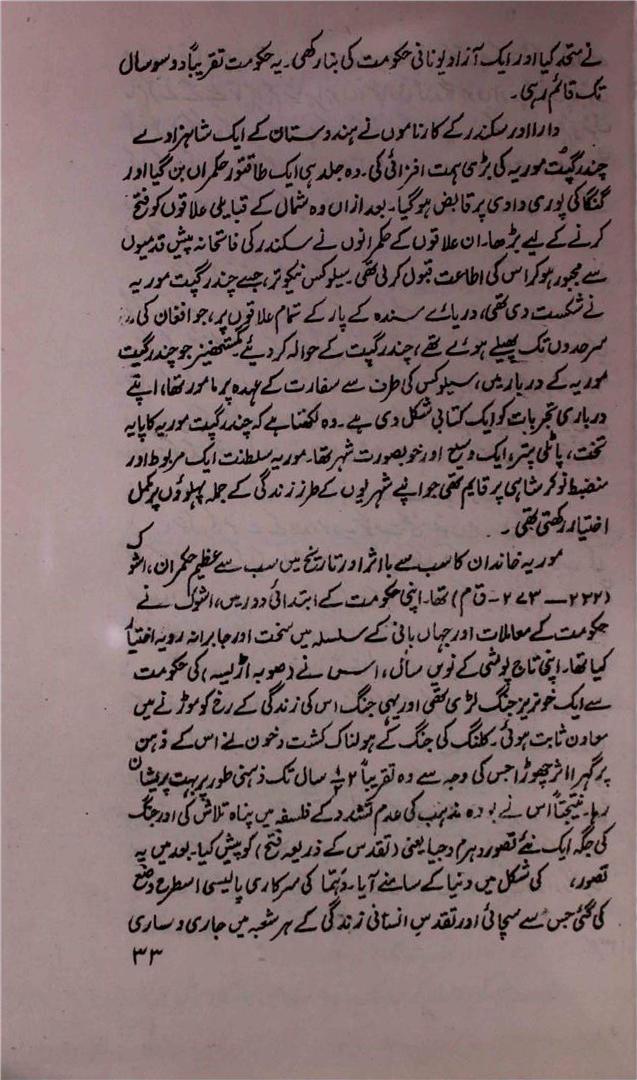 نے متحد کیا اور ایک آزاد یونانی حکومت کی بنا رکھی۔ یہ حکومت تقریباً دو سو سال
تک قائم رہی۔
دارا اور سکندر کے کارناموں نے ہندوستان کے ایک شاہزادے
چندر گپت موریہ کی بڑی ہمت افزائی کی۔ وہ جلد ہی ایک طاقتور حکمراں بن گیا اور
گنگا کی پوری وادی پر قابض ہو گیا۔ بعد ازاں وہ شمال کے قبایلی علاقوں کو فتح
کرنے کے لیے بڑھا۔ ان علاقوں کے حکمرانوں نے سکندر کی فاتحانہ پیش قدمیوں
سے مجبور ہو کر اس کی اطاعت قبول کر لی تھی۔ سیلوکس نیکوٹر، جسے چندر گپت موریہ
نے شکست دی تھی، دریائے سندھ کے پار کے تمام علاقوں پر، جو افغان کی
سرحدوں تک پھیلے ہوئے تھے، چندر گپت کے حوالہ کر دیئے۔ میگستھینز جو چندر گپت
موریہ کے دربار میں، سیلوکس کی طرف سے سفارت کے عہدہ پر مامور تھا، اپنے
درباری تجربات کو ایک کتابی شکل دی ہے۔ وہ لکھتا ہے کہ چندر گپت موریہ کا پایہ
تخت، پاٹلی پتر، ایک وسیع اور خوبصورت شہر تھا۔ موریہ سلطنت ایک مربوط اور
منضبط نوکر شاہی پر قایم تھی جو اپنے شہریوں کے طرز زندگی کے جملہ پہلوؤں پر مکمل
اختیار رکھتی تھی۔
موریہ خاندان کا سب سے با اثر اور تاریخ میں سب سے عظیم حکمران، اشوک
(۲۳۲ — ۲۷۳ - ق م) تھا۔ اپنی حکومت کے ابتدائی دور میں، اشوک نے
حکومت کے معاملات اور جہاں بانی کے سلسلہ میں سخت اور جابرانہ رویہ اختیار
کیا تھا۔ اپنی تاج پوشی کے نویں سال، اس نے (صوبہ اڑیسہ) کی حکومت
سے ایک خونریز جنگ لڑی تھی اور یہی جنگ اس کی زندگی کے رخ کو موڑنے میں
معاون ثابت ہوئی۔ کلنگ کی جنگ کے ہولناک کشت و خون نے اس کے ذہن
پر گہرا اثر چھوڑا جس کی وجہ سے وہ تقریباً ۲½ سال تک ذہنی طور پر بہت پریشان
رہا۔ نتیجتاً اس نے بودھ مذہب کی عدم تشدد کے فلسفہ میں پناہ تلاش کی اور جنگ
کی جگہ ایک نئے تصور دھرم وجیا یعنی (تقدس کے ذریعہ فتح) کو پیش کیا۔ بعد میں یہ
تصور، کی شکل میں دنیا کے سامنے آیا۔ دھما کی سرکاری پالیسی اسطرح وضع
کی گئی جس سے سچائی اور تقدس انسانی زندگی کے ہر شعبہ میں جاری و ساری
۳۳